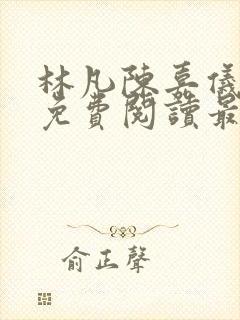 林凡陳嘉儀
免費閱讀最
俞正聲